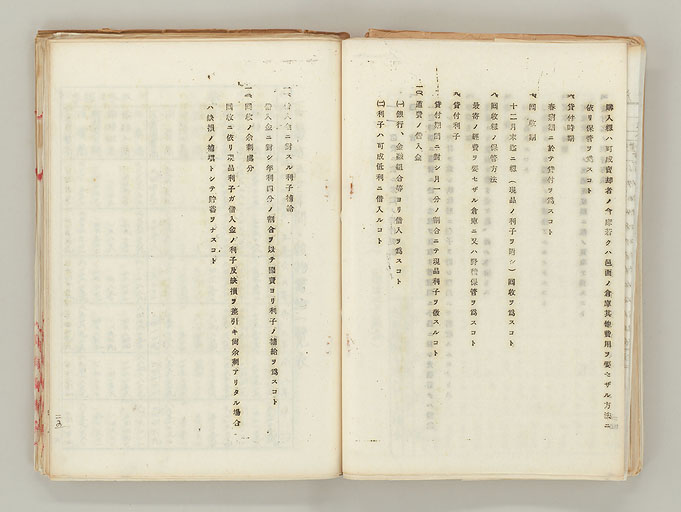 購入糧ハ可成賣却者ノ倉庫若クハ邑面ノ倉庫其他費用ヲ要セザル方法ニ
依リ保管ヲ爲スコト
貸付時期
春窮期ニ於テ貸付ヲ爲スコト
回收期
十二月末迄ニ糧(現品ノ利子ヲ附シ)回收ヲ爲スコト
回收糧ノ保管方法
最寄ノ經費ヲ要セザル倉庫ニ又ハ野積保管ヲ爲スコト
貸付利子
貸付期間ニ對シ月一分ノ割合ニテ現品利子ヲ徵スルコト
一〇、道費ノ借入金
㈠銀行、金融組合等ヨリ借入ヲ爲スコト
㈡利子ハ可成低利ニ借入ルコト
借入金ニ對スル利子補給
借入金ニ對シ年利四分ノ割合ヲ以テ國費ヨリ利子ノ補給ヲ爲スコト
回收ノ余剩處分
回收ニ依リ現品利子ガ借入金ノ利子及缺損ヲ差引キ尙余剩アリタル場合
ハ缺損ノ補塡トシテ貯蓄ヲナスコト